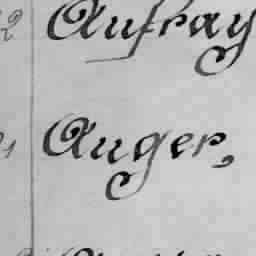 Aufray
Auger,